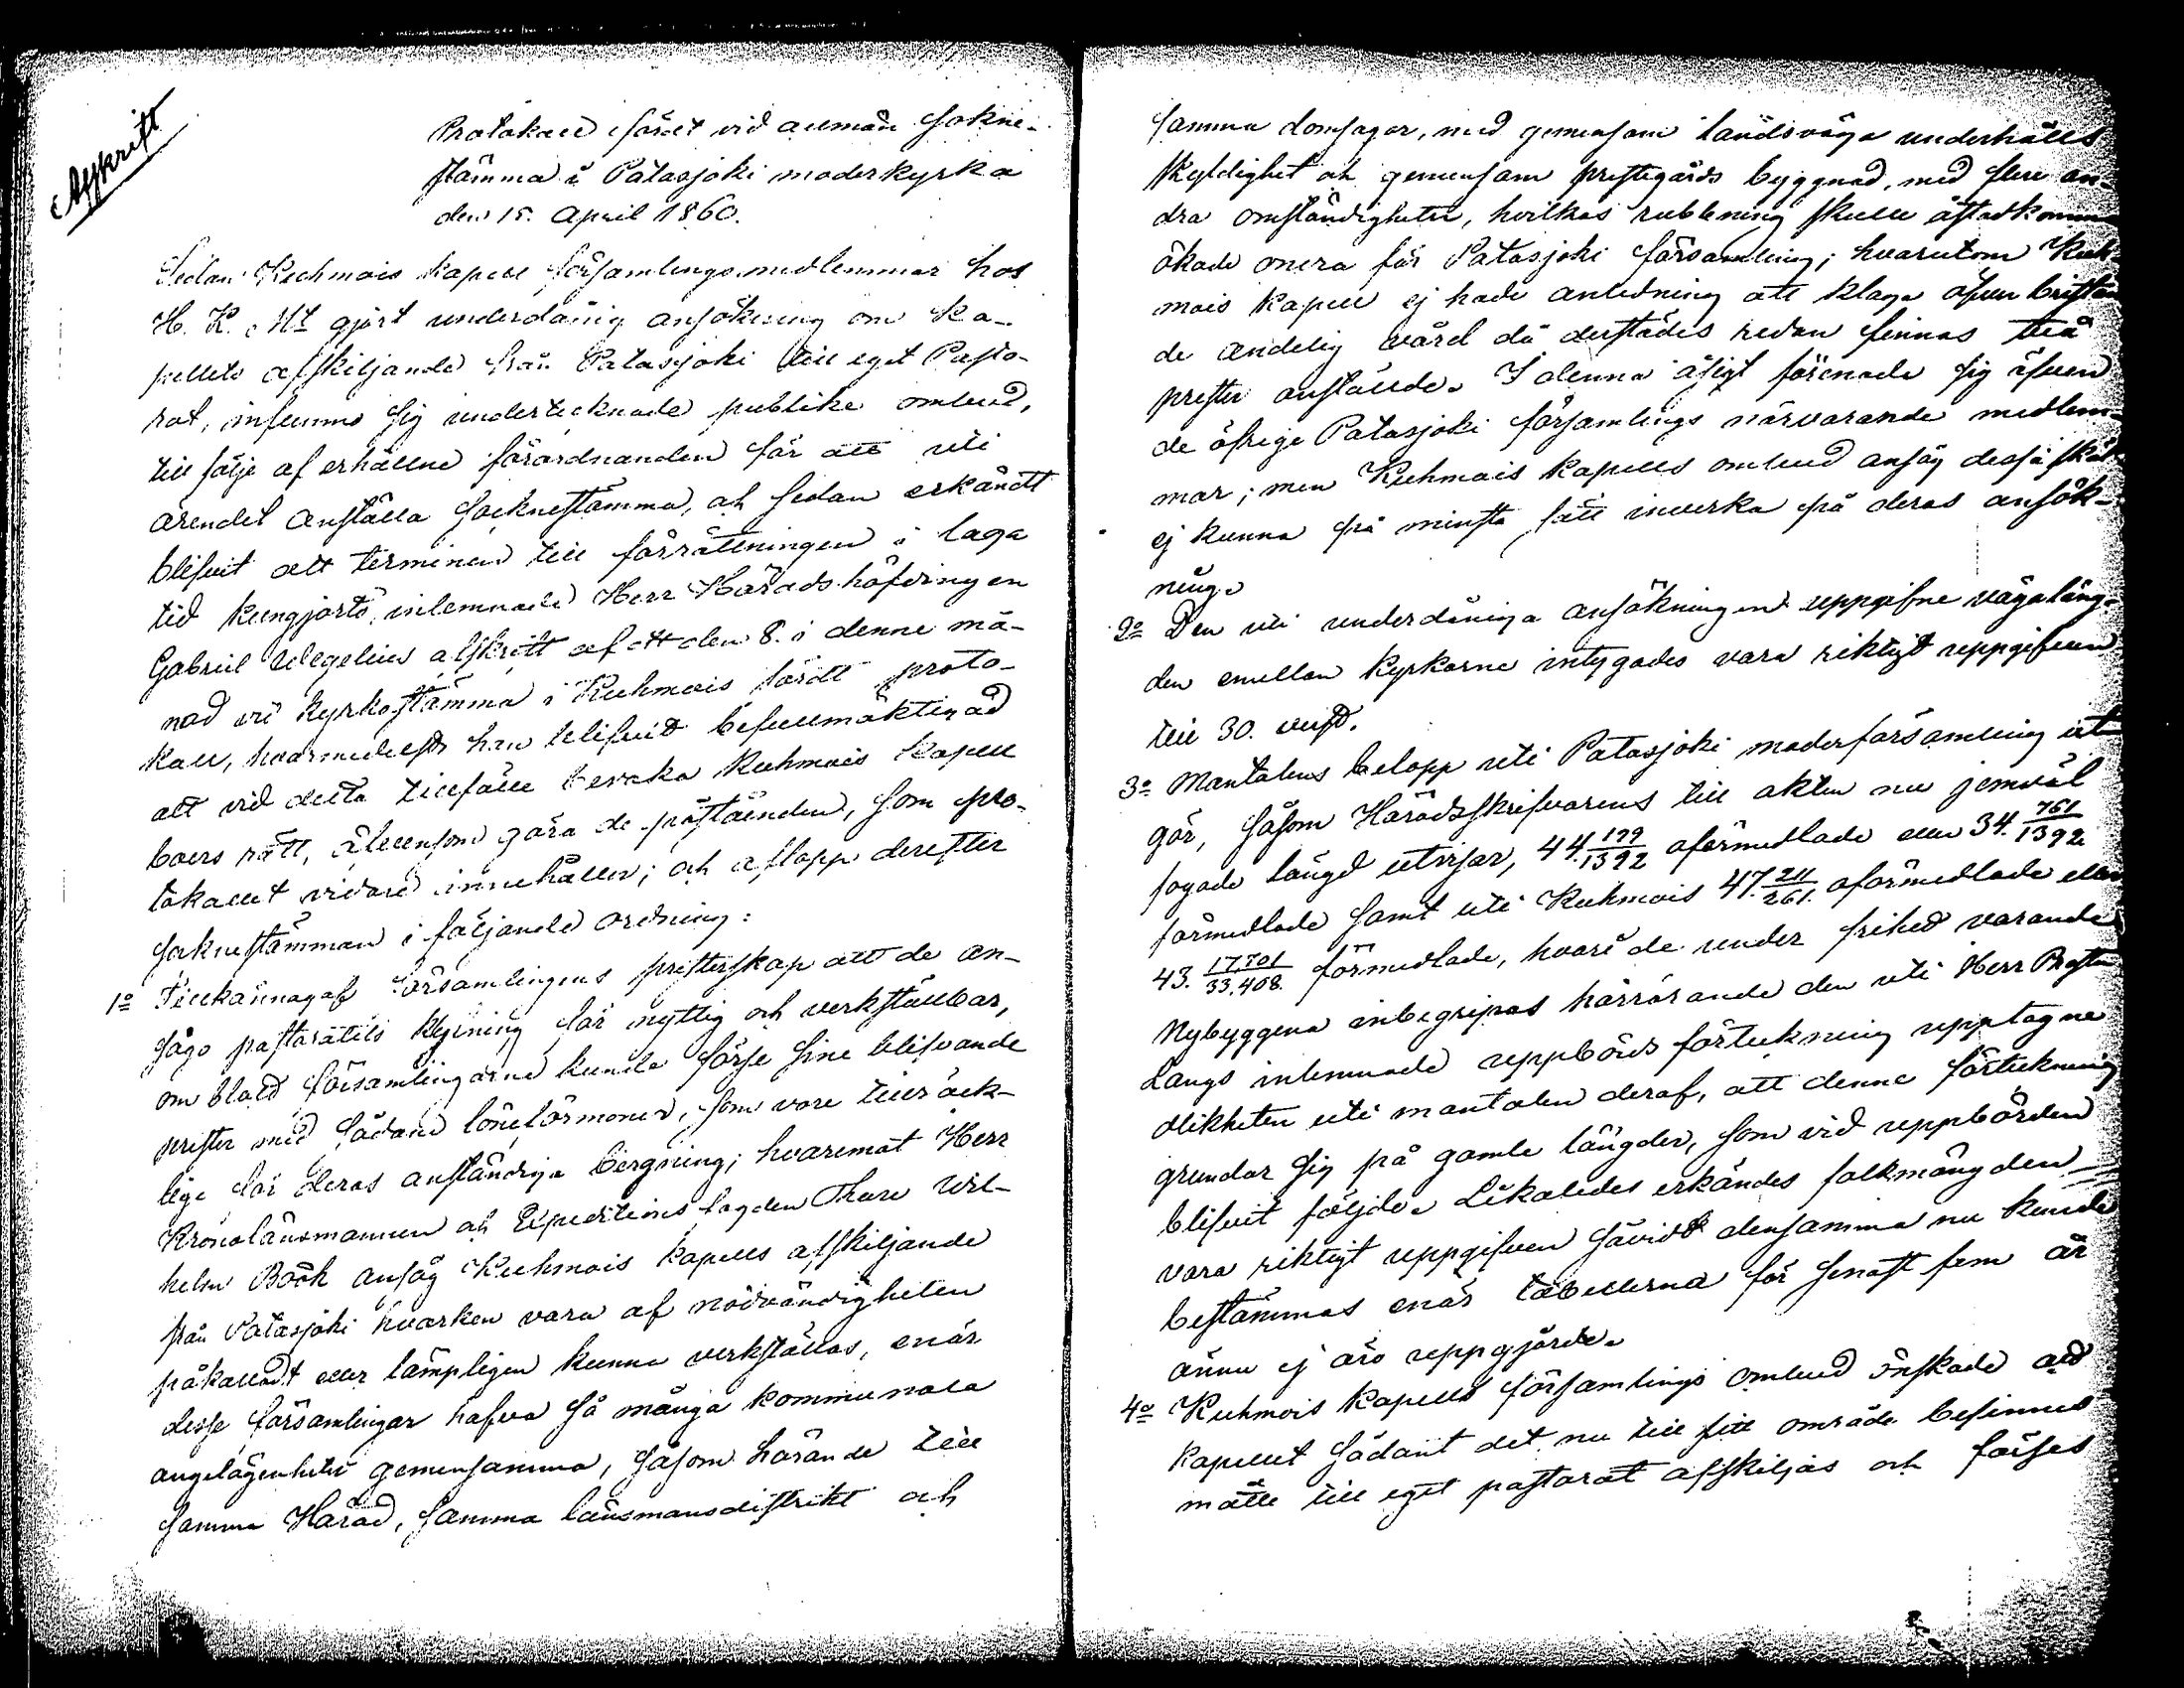 Afskrift
Protokoll fördt vid allmän sokne-
stämma i Patasjoki moderkyrka
den 15. April 1860.
Sedan Kuhmois kapell församlings medlemmar hos
H. K. Mt gjort underdånig ansökning om ka-
pellets afskiljande från Patasjoki till eget Pasto-
rat, infunno sig undertecknade publike ombud,
till följe af erhållne förordnanden för att uti
ärendet anställa socknestämma, och sedan erkändt
blifvit att terminen till förrättningen i laga
tid kungjorts, inlemnade Herr Häradshöfdingen
Gabriel Wegelius afskrift af ett den 8. i denne må-
nad vid kyrkostämma i Kuhmois fördt proto-
koll, hvarmedelst han blifvit befullmäktigad
att vid detta tillfälle bevaka Kuhmois kapell
boers rätt, älfvensom göra de påståenden, som pro-
tokollet vidare innehåller; och aflopp derefter
soknestämman i följande ordning:
1o Tillkännagaf församlingens presterskap att de an-
sågo pastoratets klyfning för nyttig och verkställbar,
om blott församlingarne kunde förse sine blifvande
prester med sådane löneförmoner, som vore tillräck-
lige för deras anständiga bergning; hvaremot Herr
Kronolänsmannen och Expeditionsfogden Thure Wil-
helm Böök ansåg Kuhmois kapells afskiljande
från Patasjoki hvarken vara af nödvändigheten
påkalladt eller lämpligen kunna verkställas, enär
desse församlingar hafva så många kommunala
angelägenheter gemensamma, såsom hörande till
samma Härad, samma länsmansdistrikt och
samma domsagor, med gemensam landsväga underhålls
skyldighet och gemensam prestegårds byggnad, med flere an-
dra omständigheter, hvilkas rubbning skulle åstadkomma
ökade onera för Patasjoki församling; hvarutom Kuh-
mois kapell ej hade anledning att klaga öfver bristan-
de andelig vård då derstädes redan finnas två
prester anstälde. I denna åsigt förenade sig äfven
de öfrige Patasjoki församlings närvarande medlem-
mar; men Kuhmois kapells ombud ansåg dessa skäl
ej kunna på minsta sätt inverka på deras ansök-
ning.
2o Den uti underdåniga ansökningen uppgifne vägaläng-
den emellan kyrkorne intygades vara riktigt uppgifven
till 30. verst.
3o Mantalens belopp uti Patasjoki moderförsamling ut-
gör, såsom Häradsskrifvarens till akten nu jemväl
fogade längd utvisar, 44. 199/1392 oförmedlade eller 34. 761/1392
förmedlade samt uti Kuhmois 47. 211/261. oförmedlade eller
43. 17,701/33,408. förmedlade, hvari de under frihed varande
Nybyggena inbegripas härrörande den uti Herr Prosten
Langs inlemnade uppbörds förteckning upptagne
olikheten uti mantalen deraf, att denne förteckning
grundar sig på gamle längder, som vid uppbörden
blifvit följde. Likaledes erkändes folkmängden
vara riktigt uppgifven såvidt densamma nu kunde
bestämmas enär tabellerna för senast fem år
ännu ej äro uppgjorde.
4o Kuhmois kapells församlings ombud önskade att
kapellet sådant det nu till sitt område befinnes
måtte till eget pastorat afskiljas och förses